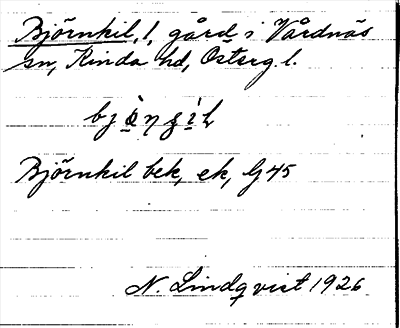 Björnkil, l, gård i Vårdnäs
sn, Kinda hd, Österg. l.
Björnkil bek, ek, G 45
N. Lindqvist 1926